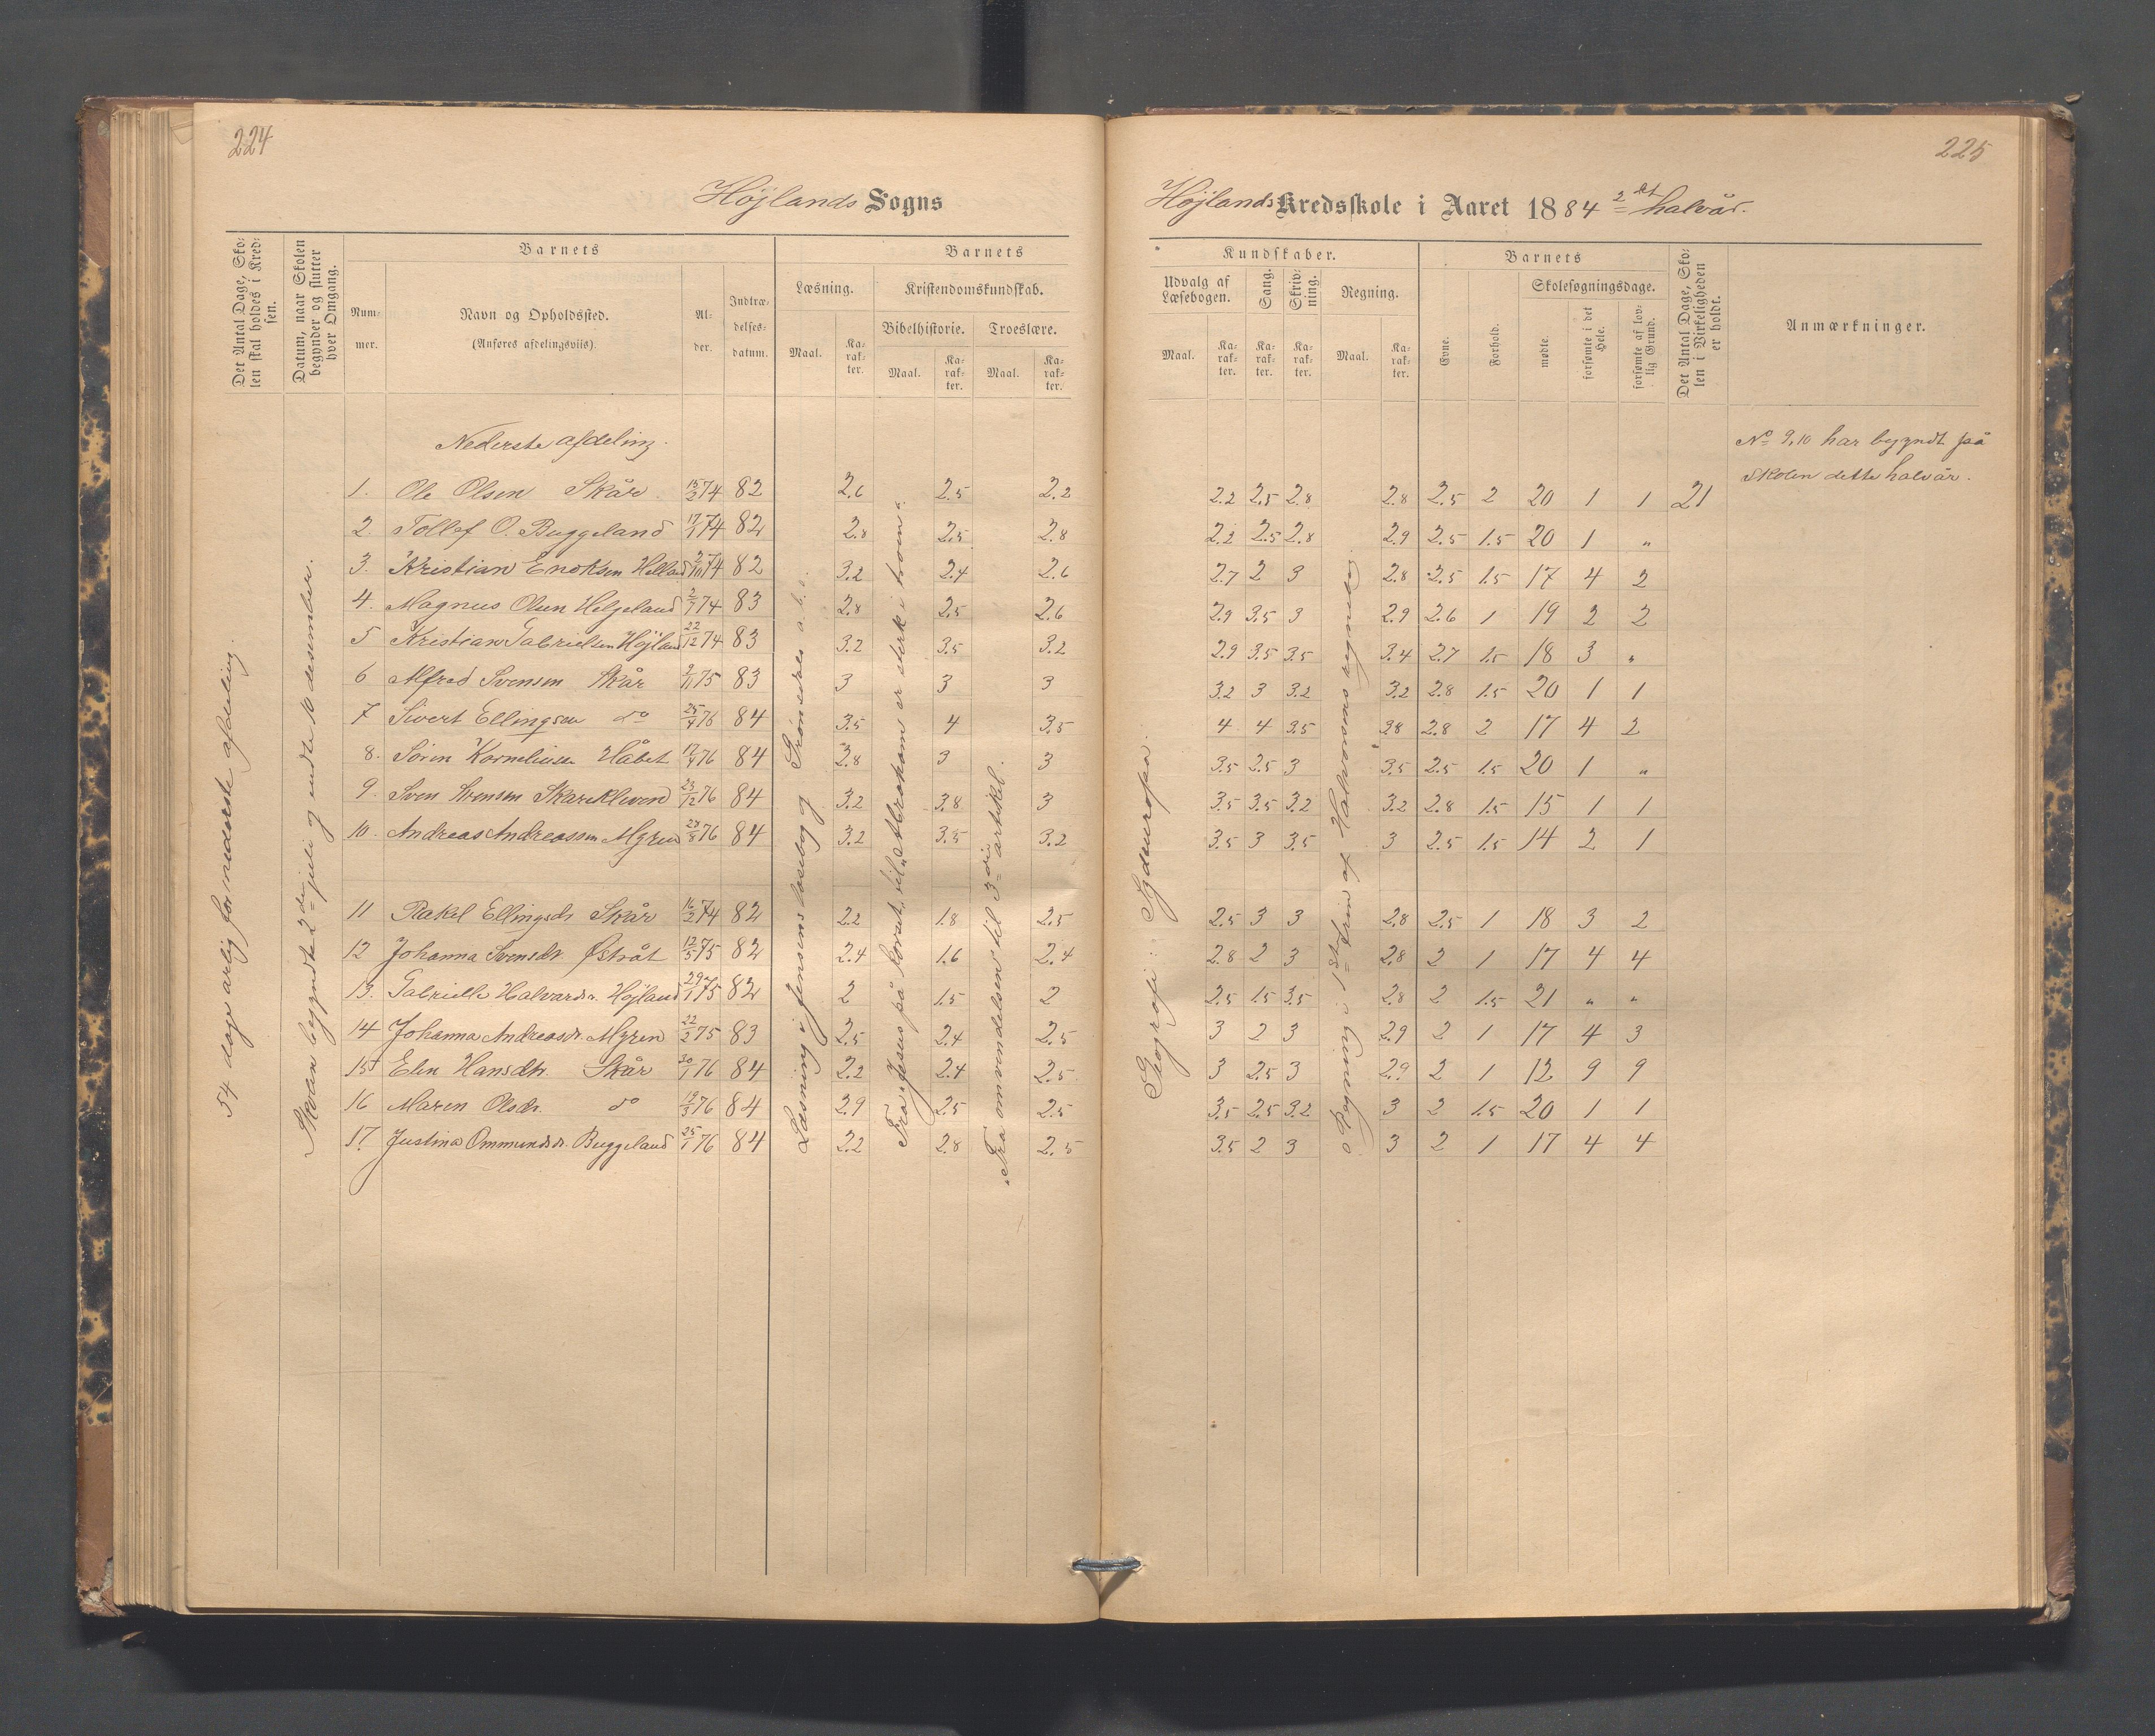 224
Højlands Sogns
Det Antal Dage, Skolen skal holdes i Kredsen.
Datum, naar Skolen begynder og slutter hver Omgang.
Barnets
Barnets
Nummer.
Navn og Opholdssted.
(Anføres afdelingsviis)
Alder.
Indtrædelsesdatum.
Læsning.
Kristendomskundskab.
Bibelhistorie. Troeslære.
Maal. Karakter. Maal. Karakter. Maal. Karakter.
54 dage årlig for nederste afdeling.
Skolen begyndte 2den juli og endte 10 desember.
Læsning i Jensens læsebog og
Fra Jesus på korset til "Abraham er sterk i troen".
"Fra omvendelsen" til 3die artikel.
Nederste afdeling.
1. Ole Olsen Skår 15/2 74 82 2.6 2.5 2.2
2. Tollef O. Buggeland 17/1 74 82 2.8 2.5 2.8
3. Kristian Enoksen Helland 2/10 74 82 3.2 2.4 2.6
4. Magnus Olsen Helgeland 2/7 74 83 2.8 2.5 2.6
5 Kristian Gabrielsen Højland 22/12 74 83 3.2 3.5 3.2
6 Alfred Svensen Skår 2/11 75 83 3 3 3
7 Sivert Ellingsen do 25/4 76 84 3.5 4 3.5
8. Sören Korneliusen Håbet 17/4 76 84 2.8 3 3
9. Sven Svensen Skarekleven 23/12 76 84 3.2 3.8 3
10. Andreas Andreassen Myren 28/8 76 84 3.2 3.5 3.2
11 Rakel Ellingsdr Skår 16/2 74 82 2.2 1.8 2.5
12 Johanna Svensdr. Østråt 12/5 75 82 2.4 1.6 2.4
13. Gabrielle Halvardsdr. Højland 29/1 75 82 2 1.5 2
14 Johanna Andreasdr. Myren 22/2 75 83 2.5 2.4 2.5
15 Elen Hansdtr. Skår 30/1 76 84 2.2 2.4 2.5
16 Maren Olsdr. do 19/3 76 84 2.9 2.5 2.5
17. Justina Ommundsdr. Buggeland 25/1 76 84 2.2 2.8 2.5
225
Højlands Kredsskole i Aaret 1884 2det halvår.
Kundskaber.
Barnets
Udvalg af Læsebogen.
Sang.
Skrivning.
Regning.
Evne.
Forhold.
Skolesøgningsdage.
mødte.
forsømte i det Hele.
forsømte af lovlig Grund.
Det Antal Dage, Skolen i Virkeligheden er holdt.
Anmærkninger.
Maal. Karakter. Karakter. Karakter. Maal. Karakter.
Geografi: Sydeuropa.
Regning i 1ste trin af Halvorsens regnebog.
No 9, 10 har begyndt på
skolen dette halvår.
2.2 2.5 2.8 2.8 2.5 2 20 1 1 21
2.2 2.5 2.8 2.9 2.5 1.5 20 1 "
2.7 2 3 2.8 2.5 1.5 17 4 2
2.9 3.5 3 2.9 2.6 1 19 2 2
2.9 3.5 3.5 3.4 2.7 1.5 18 3 "
3.2 3 3.2 3.2 2.8 1.5 20 1 1
4 4 3.5 3.8 2.8 2 17 4 2
3.5 2.5 3 3.5 2.5 1.5 20 1 "
3.5 3.5 3.2 3.2 2.8 1.5 15 1 1
3.5 3 3.5 3 2.5 1.5 14 2 1
2.5 3 3 2.8 2.5 1 18 3 2
2.8 2 3 2.8 2 1 17 4 4
2.5 1.5 3.5 2.8 2 1.5 21 " "
3 2 3 2.9 2 1 17 4 3
3 2.5 3 2.9 2 1 12 9 9
3.5 2.5 3.2 3 2 1.5 20 1 1
3.5 2 3 3 2 1 17 4 4